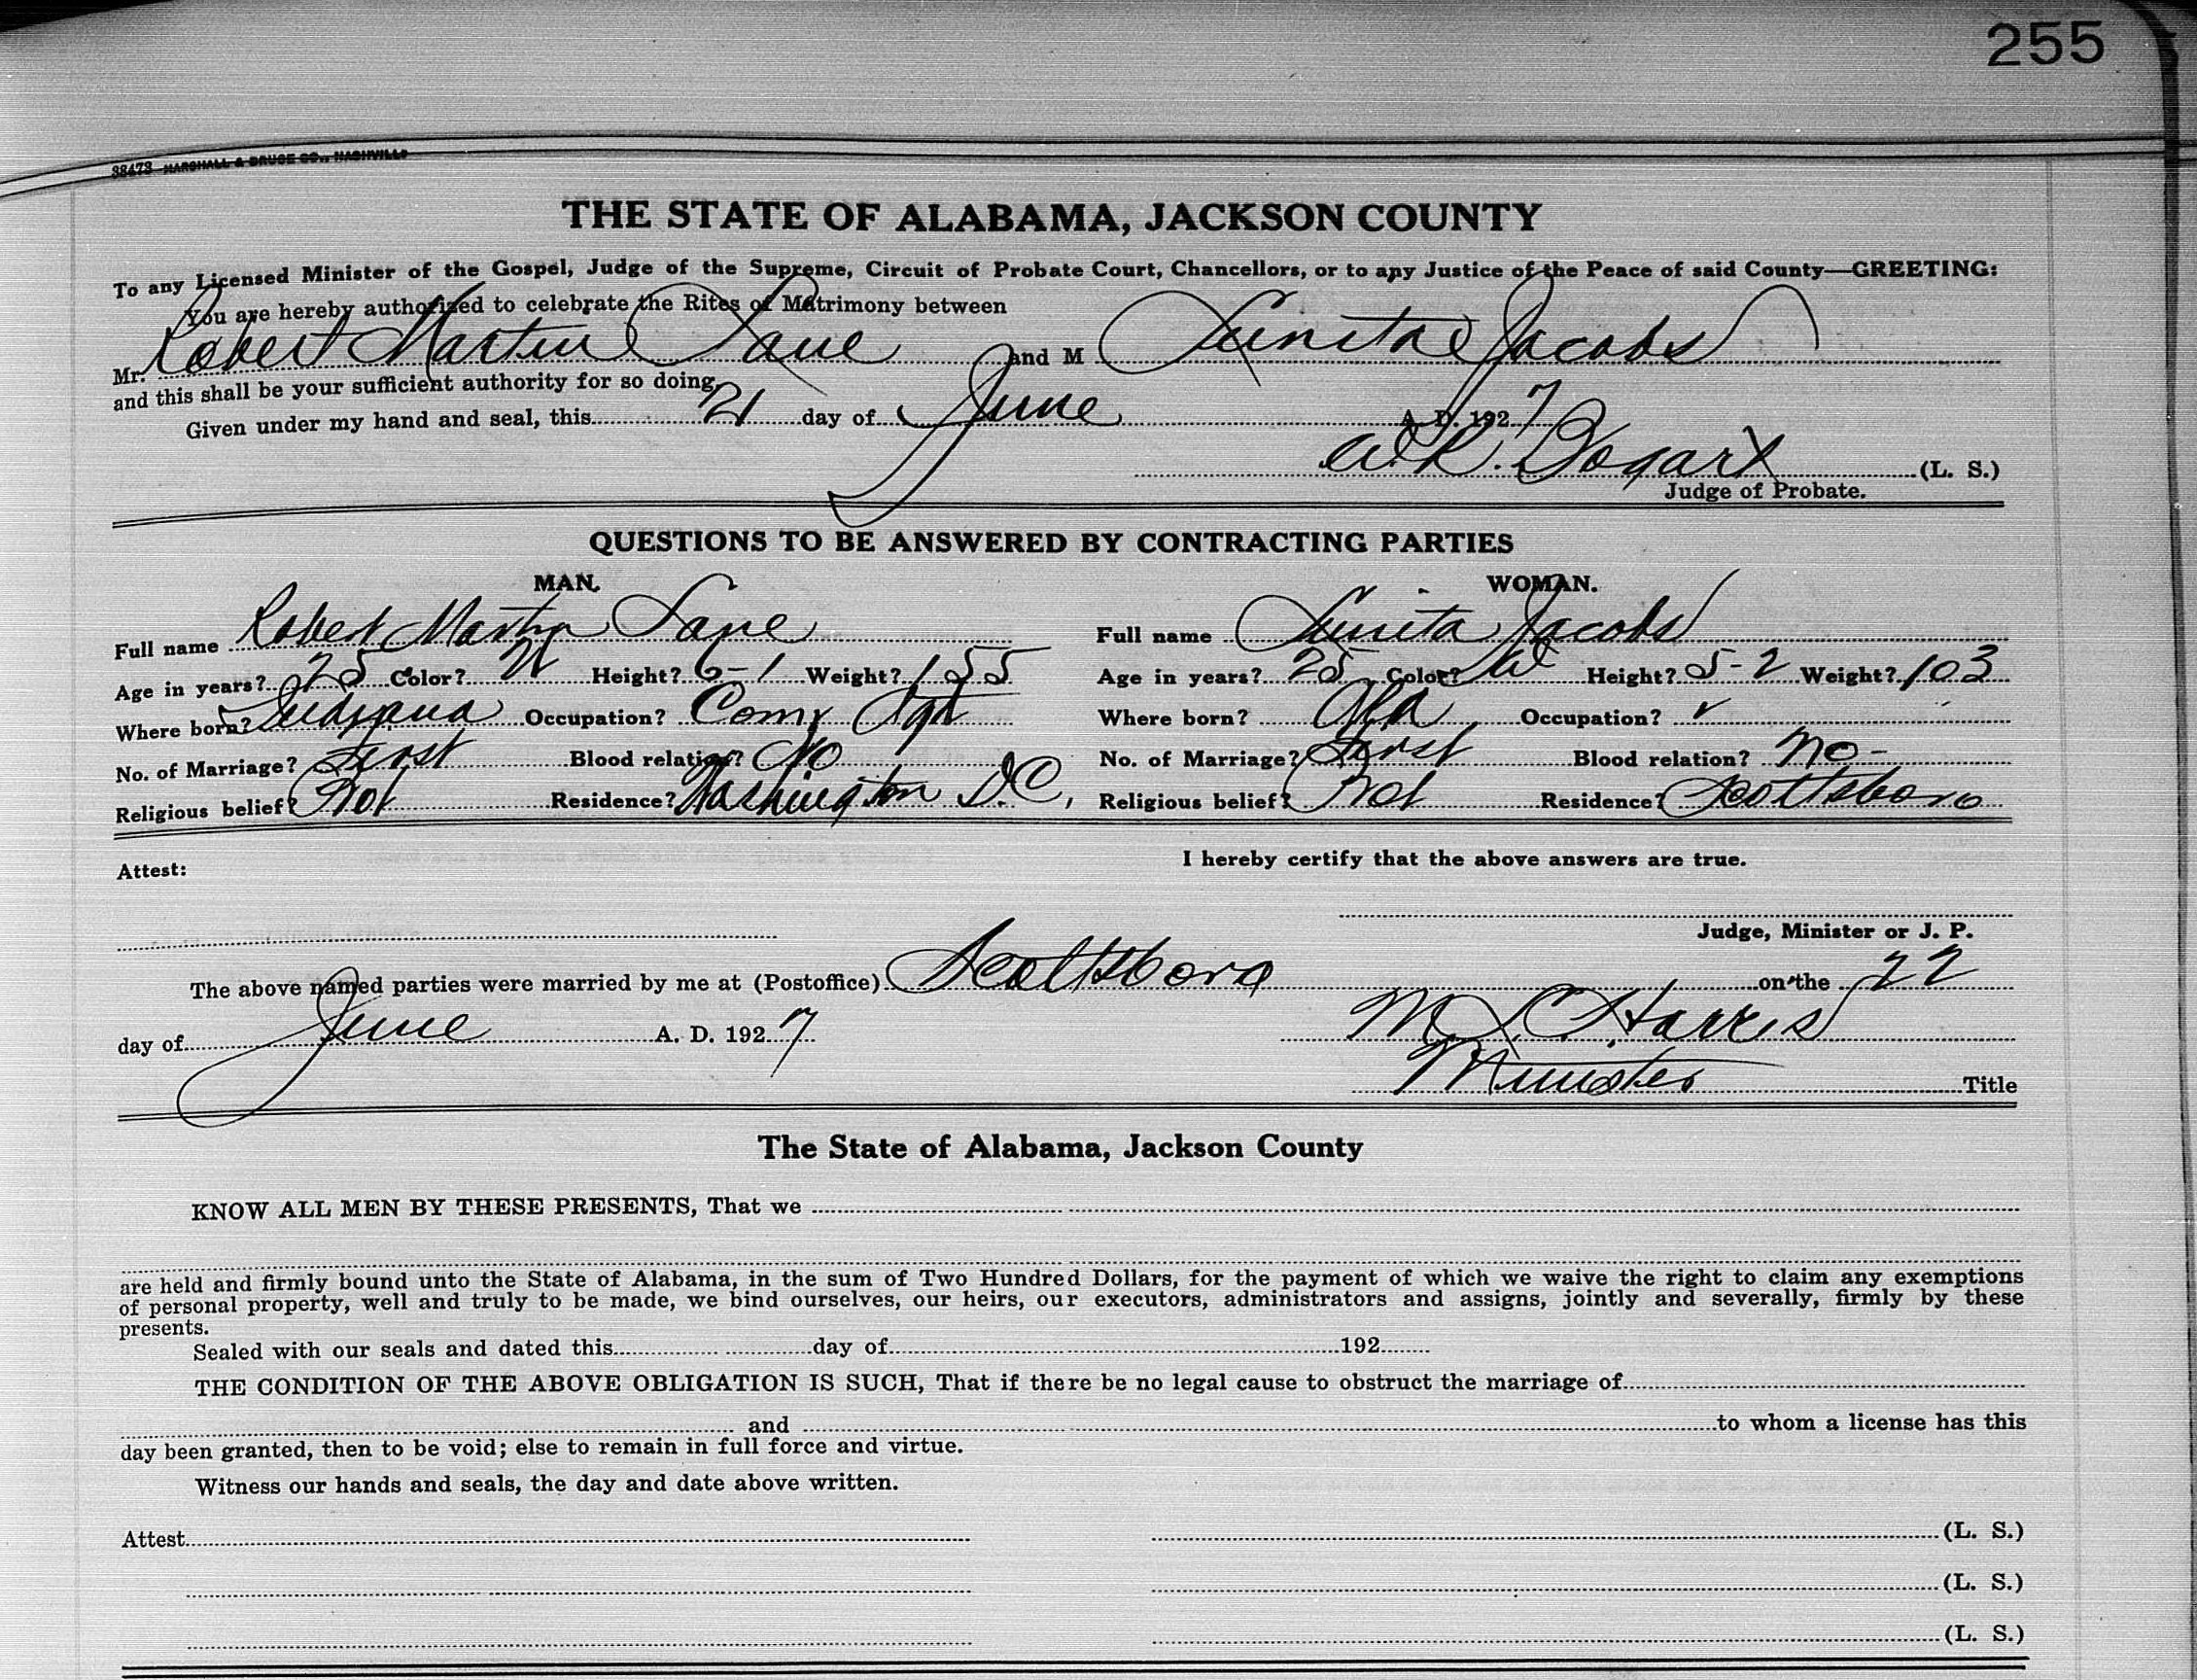 255
38473 MARSHALL & BRUCE CO., NASHVILLE
THE STATE OF ALABAMA, JACKSON COUNTY
To any Licensed Minister of the Gospel, Judge of the Supreme, Circuit of Probate Court, Chancellors, or to any Justice of the Peace of said County—GREETING:
You are hereby authorized to celebrate the Rites of Matrimony between
Mr. Robert Martin Lane and M Jacobs
and this shall be your sufficient authority for so doing,
Given under my hand and seal, this 21 day of June A. D. 1927
Bogart (L. S.)
Judge of Probate.
QUESTIONS TO BE ANSWERED BY CONTRACTING PARTIES
MAN. WOMAN.
Full name Robert Martin Lane Full name Jacobs
Age in years? 25 Color? W Height? 6-1 Weight? 155 Age in years? 25 Color? W Height? 5-2 Weight? 103
Where born? Indiana Occupation? Agt Where born? Ala Occupation? ✓
No. of Marriage? First Blood relation? No No. of Marriage? First Blood relation? No-
Religious belief? Prot Residence? Washington D.C, Religious belief? Prot Residence? Scottsboro
Attest: I hereby certify that the above answers are true.
Judge, Minister or J. P.
The above named parties were married by me at (Postoffice) Scottsboro on the 22
day of June A. D. 1927 Harris
Minister Title
The State of Alabama, Jackson County
KNOW ALL MEN BY THESE PRESENTS, That we
are held and firmly bound unto the State of Alabama, in the sum of Two Hundred Dollars, for the payment of which we waive the right to claim any exemptions
of personal property, well and truly to be made, we bind ourselves, our heirs, our executors, administrators and assigns, jointly and severally, firmly by these
presents.
Sealed with our seals and dated this day of 192
THE CONDITION OF THE ABOVE OBLIGATION IS SUCH, That if there be no legal cause to obstruct the marriage of
and to whom a license has this
day been granted, then to be void; else to remain in full force and virtue.
Witness our hands and seals, the day and date above written.
Attest (L. S.)
(L. S.)
(L. S.)